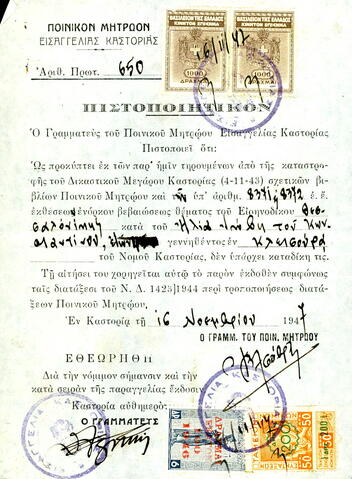 ΠΟΙΝΙΚΟΝ ΜΗΤΡΩΟΝ
ΕΙΣΑΓΓΕΛΙΑΣ ΚΑΣΤΟΡΙΑΣ
Ἀριθ. Πρωτ. 650
ΒΑΣΙΛΕΙΟΝ ΤΗΣ ΕΛΛΑΔΟΣ ΒΑΣΙΛΕΙΟΝ ΤΗΣ ΕΛΛΑΔΟΣ
ΚΙΝΗΤΟΝ ΕΠΙΣΗΜΑ ΚΙΝΗΤΟΝ ΕΠΙΣΗΜΑ
1000 1000
ΔΡΑΧΜΑΙ ΔΡΑΧΜΑΙ
16/11/47
ΠΙΣΤΟΠΟΙΗΤΙΚΟΝ
Ὁ Γραμματεὺς τοῦ Ποινικοῦ Μητρώου Εἰσαγγελίας Καστορίας
Πιστοποιεῖ ὅτι:
Ὡς προκύπτει ἐκ τῶν παρ' ἡμῖν τηρουμένων ἀπὸ τῆς καταστρο-
φῆς τοῦ Δικαστικοῦ Μεγάρου Καστορίας (4-11-43) σχετικῶν βι-
βλίων Ποινικοῦ Μητρώου καὶ τὴν ὑπ' ἀριθμ. 8771/8772 ἐ. ἔ.
ἐκθέσεως ἐνόρκου βεβαιώσεως θέματος τοῦ Εἰρηνοδικείου Θεσ-
σαλονίκης κατὰ τοῦ Ἠλία τοῦ Κων-
σταντίνου, γεννηθέντος ἐν Κλεισούρᾳ
τοῦ Νομοῦ Καστορίας, δὲν ὑπάρχει καταδίκη τις.
Τῇ αἰτήσει του χορηγεῖται αὐτῷ τὸ παρὸν ἐκδοθὲν συμφώνως
ταῖς διατάξεσι τοῦ Ν. Δ. 1425/1944 περὶ τροποποιήσεως διατά-
ξεων Ποινικοῦ Μητρώου,
Ἐν Καστορίᾳ τῇ 16 Νοεμβρίου 1947
Ο ΓΡΑΜΜ. ΤΟΥ ΠΟΙΝ. ΜΗΤΡΩΟΥ
ΕΘΕΩΡΗΘΗ
Διὰ τὴν νόμιμον σήμανσιν καὶ τὴν
κατὰ σειρὰν τῆς παραγγελίας ἔκδοσιν
Καστορία αὐθημερόν
Ο ΓΡΑΜΜΑΤΕΥΣ
50 50